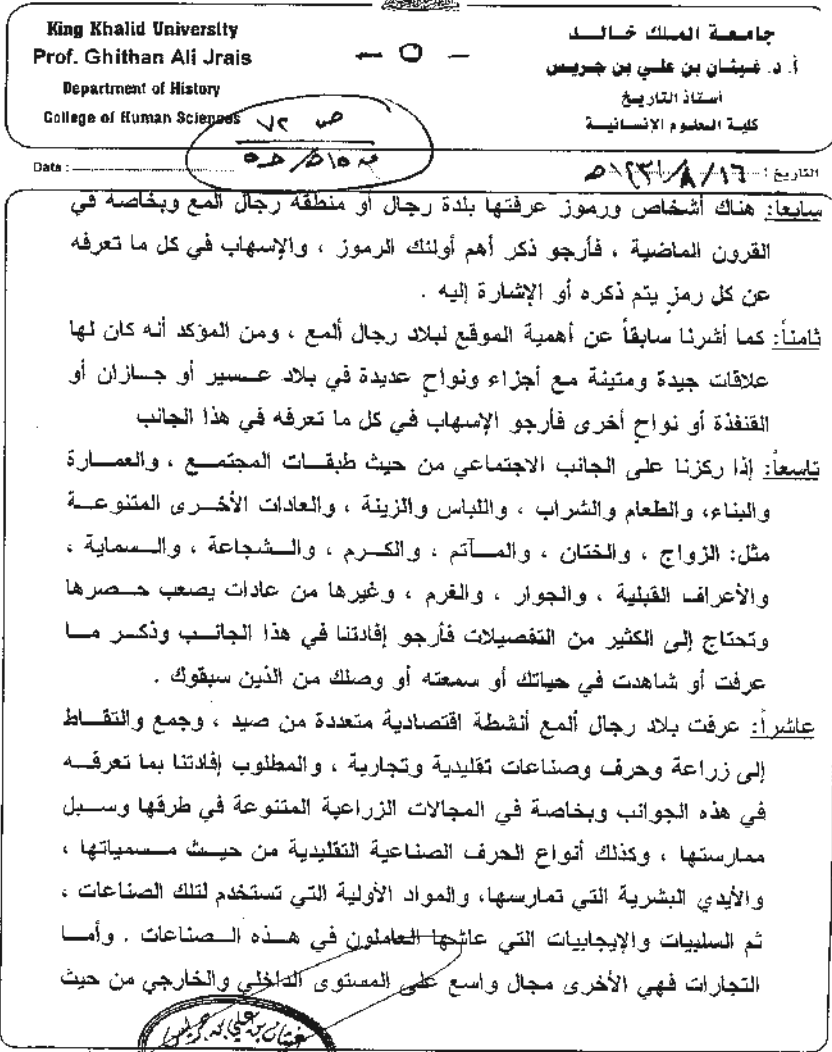 King Khalid University
Prof. Ghithan Ali Jrais
Department of History
College of Human Sciences
– ٥ –
جامعة الملك خالد
أ. د. غيثان بن علي بن جريس
أستاذ التاريخ
كلية العلوم الإنسانية
ص ٧٢
Date :
التاريخ : ١٦ / ٨ / ١٤٣١هـ
سابعا: هناك أشخاص ورموز عرفتها بلدة رجال أو منطقة رجال ألمع وبخاصة في
القرون الماضية ، فأرجو ذكر أهم أولئك الرموز ، والإسهاب في كل ما تعرفه
عن كل رمز يتم ذكره أو الإشارة إليه .
ثامناً: كما أشرنا سابقاً عن أهمية الموقع لبلاد رجال ألمع ، ومن المؤكد أنه كان لها
علاقات جيدة ومتينة مع أجزاء ونواح عديدة في بلاد عسير أو جازان أو
القنفذة أو نواح أخرى فأرجو الإسهاب في كل ما تعرفه في هذا الجانب
تاسعاً: إذا ركزنا على الجانب الاجتماعي من حيث طبقات المجتمع ، والعمارة
والبناء، والطعام والشراب ، واللباس والزينة ، والعادات الأخرى المتنوعة
مثل: الزواج ، والختان ، والمآتم ، والكرم ، والشجاعة ، والسماية ،
والأعراف القبلية ، والجوار ، والغرم ، وغيرها من عادات يصعب حصرها
وتحتاج إلى الكثير من التفصيلات فأرجو إفادتنا في هذا الجانب وذكر ما
عرفت أو شاهدت في حياتك أو سمعته أو وصلك من الذين سبقوك .
عاشراً: عرفت بلاد رجال ألمع أنشطة اقتصادية متعددة من صيد ، وجمع والتقاط
إلى زراعة وحرف وصناعات تقليدية وتجارية ، والمطلوب إفادتنا بما تعرفه
في هذه الجوانب وبخاصة في المجالات الزراعية المتنوعة في طرقها وسبل
ممارستها ، وكذلك أنواع الحرف الصناعية التقليدية من حيث مسمياتها ،
والأيدي البشرية التي تمارسها، والمواد الأولية التي تستخدم لتلك الصناعات ،
ثم السلبيات والإيجابيات التي عاشها العاملون في هذه الصناعات . وأما
التجارات فهي الأخرى مجال واسع على المستوى الداخلي والخارجي من حيث
غيثان بن علي بن جريس